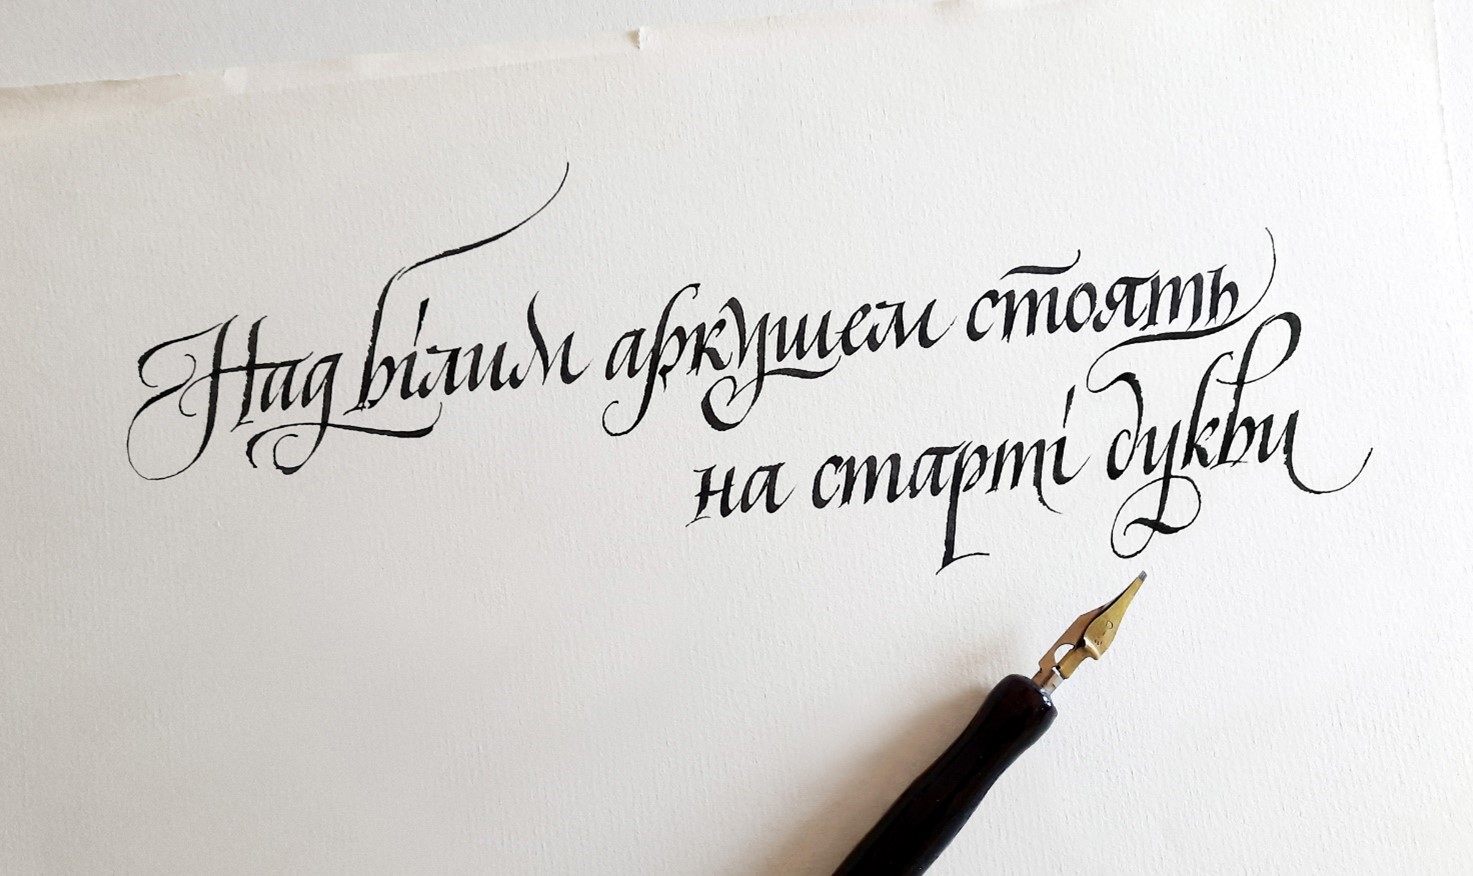 Над білим аркушем стоять
на старті букви